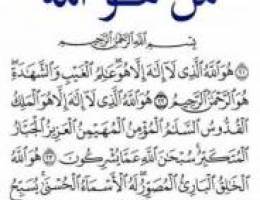 من هو الله
بِسْمِ اللَّهِ الرَّحْمَٰنِ الرَّحِيمِ
﴿٢١﴾ هُوَ اللَّهُ الَّذِي لَا إِلَٰهَ إِلَّا هُوَ عَٰلِمُ الْغَيْبِ وَالشَّهَٰدَةِ
هُوَ الرَّحْمَٰنُ الرَّحِيمُ ﴿٢٢﴾ هُوَ اللَّهُ الَّذِي لَا إِلَٰهَ إِلَّا هُوَ الْمَلِكُ
الْقُدُّوسُ السَّلَٰمُ الْمُؤْمِنُ الْمُهَيْمِنُ الْعَزِيزُ الْجَبَّارُ
الْمُتَكَبِّرُ سُبْحَٰنَ اللَّهِ عَمَّا يُشْرِكُونَ ﴿٢٣﴾ هُوَ اللَّهُ
الْخَٰلِقُ الْبَارِئُ الْمُصَوِّرُ لَهُ الْأَسْمَاءُ الْحُسْنَىٰ يُسَبِّحُ